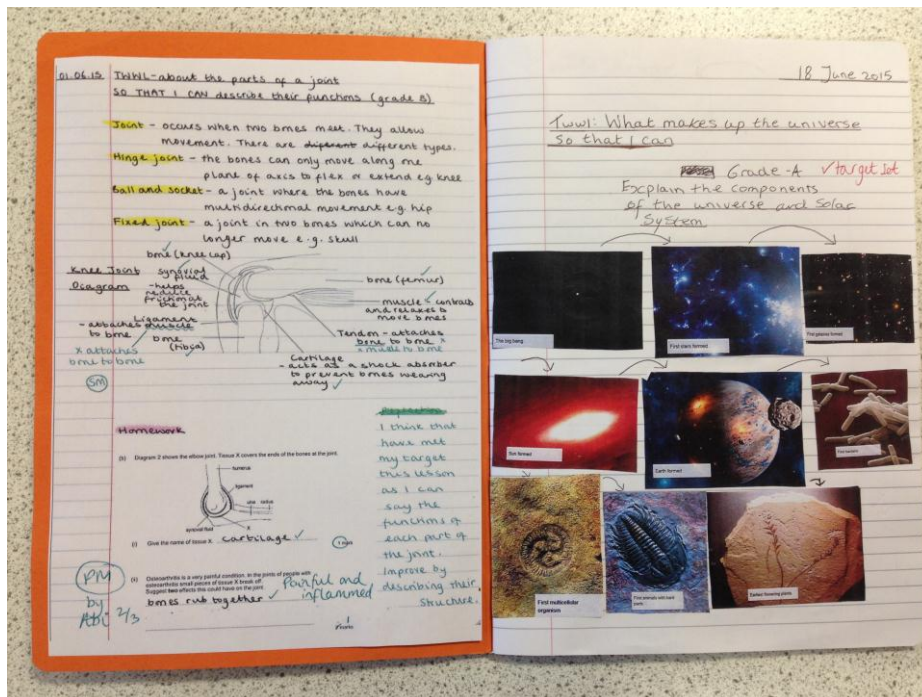 01.06.15 TWWL - about the parts of a joint
SO THAT I CAN describe their functions (grade B)
Joint - occurs when two bones meet. They allow
movement. There are different different types.
Hinge joint - the bones can only move along one
plane of axis to flex or extend eg knee
Ball and socket - a joint where the bones have
multidirectional movement e.g. hip
Fixed joint - a joint in two bones which can no
longer move e.g. skull
Knee Joint
Diagram
bone (knee cap)
synovial
fluid
- helps
reduce
friction at
the joint
Ligament
- attaches muscle
to bone
x attaches
bone to bone
bone
(tibia)
bone (femur)
muscle - contracts
and relaxes to
move bones
Tendon - attaches
bone to bone x
x muscle to bone
Cartilage
- acts as a shock absorber
to prevent bones wearing
away ✓
SM
Homework
(b) Diagram 2 shows the elbow joint. Tissue X covers the ends of the bones at the joint.
humerus
ligament
ulna radius
synovial fluid X
(i) Give the name of tissue X. cartilage ✓
1 mark
(ii) Osteoarthritis is a very painful condition. In the joints of people with
osteoarthritis small pieces of tissue X break off.
Suggest two effects this could have on the joint.
bones rub together ✓ Painful and
inflammed
PM
by
Abi 2/3
I think that
have met
my target
this lesson
as I can
say the
functions of
each part of
the joint.
Improve by
describing their
structure.
18 June 2015
Twwl: What makes up the universe
So that I can
Grade-A ✓ target 1st
Explain the components
of the universe and Solar
System
The big bang
First stars formed
First galaxies formed
Sun formed
Earth formed
First bacteria
First multicellular
organism
First animals with hard
parts
Earliest flowering plants